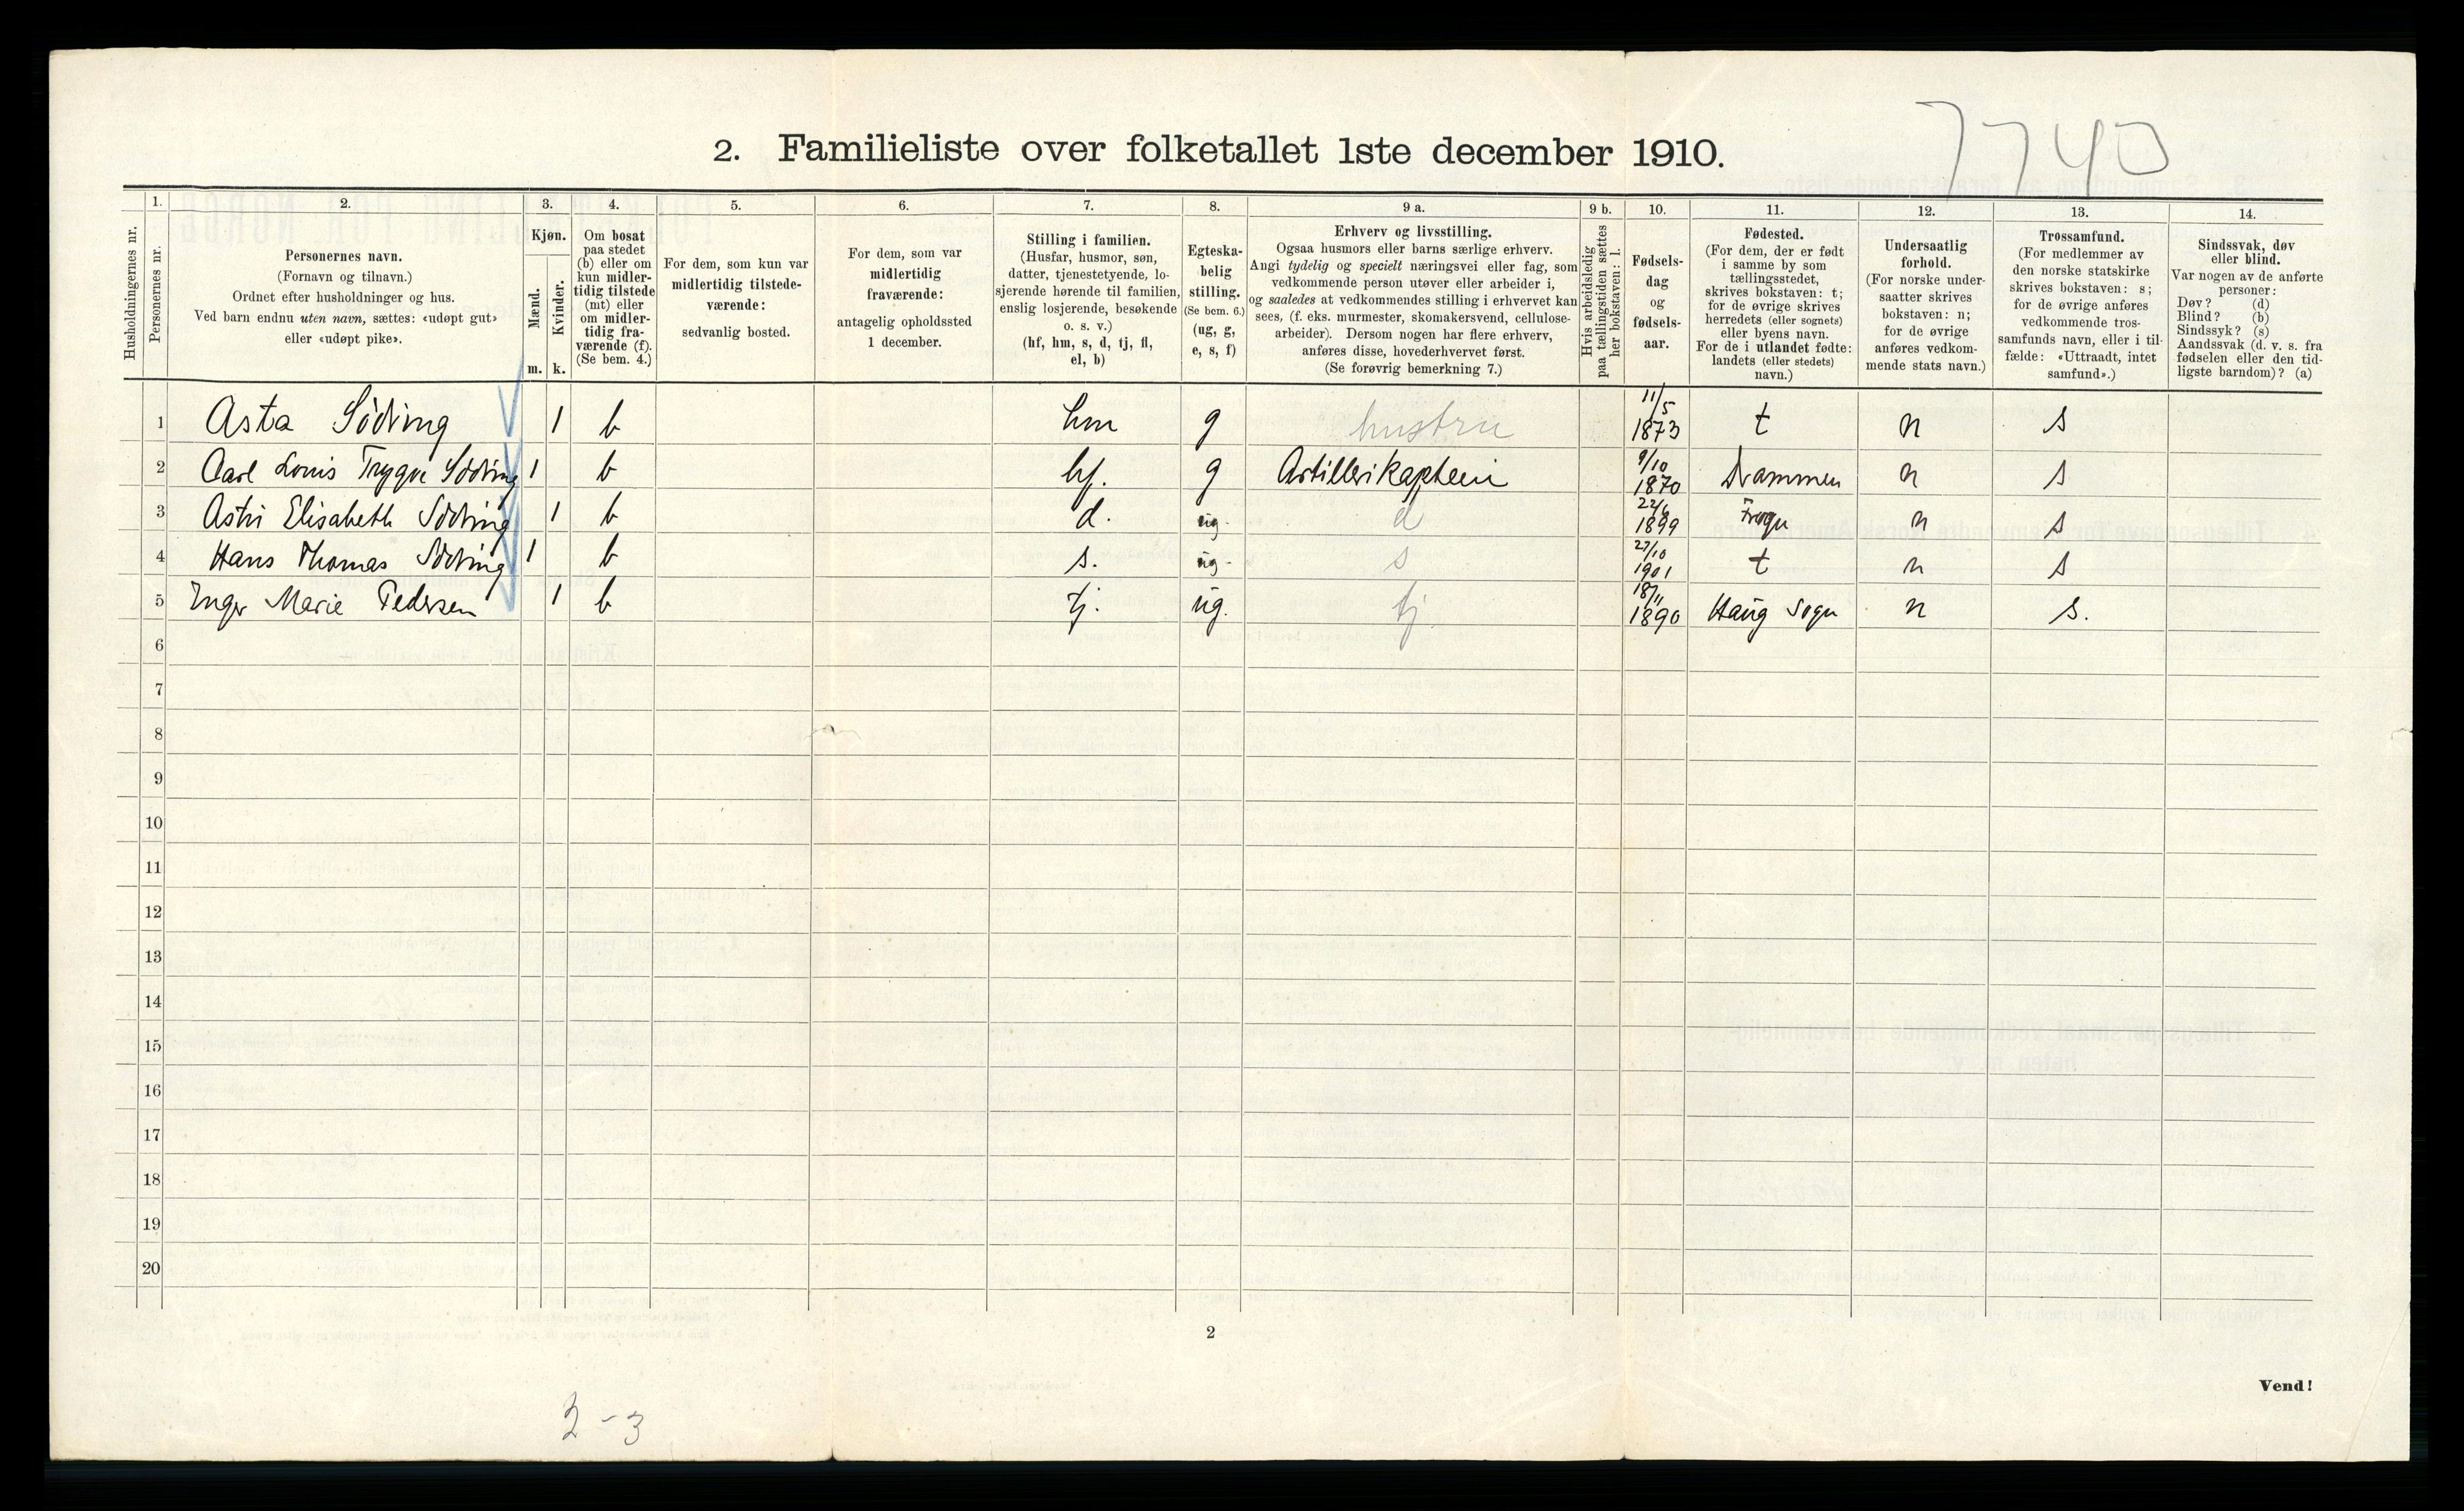 7740
2. Familieliste over folketallet 1ste december 1910.
Husholdningernes nr.
1.
Personernes nr.
2.
Personernes navn.
(Fornavn og tilnavn.)
Ordnet efter husholdninger og hus.
Ved barn endnu uten navn, sættes: «udøpt gut»
eller «udøpt pike».
3.
Kjøn.
Mænd.
Kvinder.
m. k.
4.
Om bosat
paa stedet
(b) eller om
kun midler-
tidig tilstede
(mt) eller
om midler-
tidig fra-
værende (f).
(Se bem. 4.)
5.
For dem, som kun var
midlertidig tilstede-
værende:
sedvanlig bosted.
6.
For dem, som var
midlertidig
fraværende:
antagelig opholdssted
1 december.
7.
Stilling i familien.
(Husfar, husmor, søn,
datter, tjenestetyende, lo-
sjerende hørende til familien,
enslig losjerende, besøkende
o. s. v.)
(hf, hm, s, d, tj, fl,
el, b)
8.
Egteska-
belig
stilling.
(Se bem. 6.)
(ug, g,
e, s, f)
9 a.
Erhverv og livsstilling.
Ogsaa husmors eller barns særlige erhverv.
Angi tydelig og specielt næringsvei eller fag, som
vedkommende person utøver eller arbeider i,
og saaledes at vedkommendes stilling i erhvervet kan
sees, (f. eks. murmester, skomakersvend, cellulose-
arbeider). Dersom nogen har flere erhverv,
anføres disse, hovederhvervet først.
(Se forøvrig bemerkning 7.)
9 b.
Hvis arbeidsledig
paa tællingstiden sættes
her bokstaven: l.
10.
Fødsels-
dag
og
fødsels-
aar.
11.
Fødested.
(For dem, der er født
i samme by som
tællingsstedet,
skrives bokstaven: t;
for de øvrige skrives
herredets (eller sognets)
eller byens navn.
For de i utlandet fødte:
landets (eller stedets)
navn.)
12.
Undersaatlig
forhold.
(For norske under-
saatter skrives
bokstaven: n;
for de øvrige
anføres vedkom-
mende stats navn.)
13.
Trossamfund.
(For medlemmer av
den norske statskirke
skrives bokstaven: s;
for de øvrige anføres
vedkommende tros-
samfunds navn, eller i til-
fælde: «Uttraadt, intet
samfund».)
14.
Sindssvak, døv
eller blind.
Var nogen av de anførte
personer:
Døv? (d)
Blind? (b)
Sindssyk? (s)
Aandssvak (d. v. s. fra
fødselen eller den tid-
ligste barndom)? (a)
1 Asta Söding 1 b hm g hustru 11/5 1873 t n s
2 Carl Louis Trygve Söding 1 b hf. g Artillerikaptein 9/10 1870 Drammen n s
3 Astri Elisabeth Söding 1 b d. ug. d 22/6 1899 Frogn n s
4 Hans Thomas Söding 1 b s. ug. s 27/10 1901 t n s
5 Inger Marie Pedersen 1 b tj. ug. tj 18/11 1890 Haug Sogn n s.
6
7
8
9
10
11
12
13
14
15
16
17
18
19
20
2
Vend!
2-3